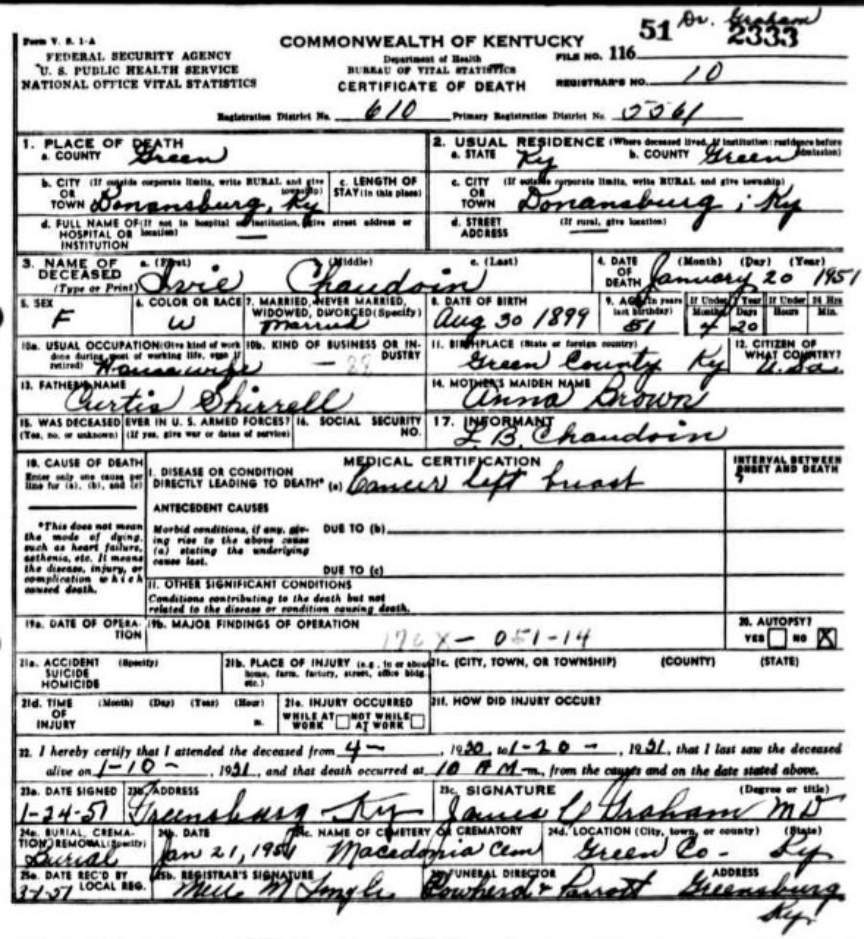 Dr. Graham
51 2333
Form V. S. 1-A
FEDERAL SECURITY AGENCY
U. S. PUBLIC HEALTH SERVICE
NATIONAL OFFICE VITAL STATISTICS
COMMONWEALTH OF KENTUCKY
Department of Health
BUREAU OF VITAL STATISTICS
CERTIFICATE OF DEATH
FILE NO. 116
REGISTRAR'S NO. 10
Registration District No. 610 Primary Registration District No. 5561
1. PLACE OF DEATH
a. COUNTY Green
2. USUAL RESIDENCE (Where deceased lived. If institution: residence before admission)
a. STATE Ky b. COUNTY Green
b. CITY (If outside corporate limits, write RURAL and give township)
OR TOWN Donansburg, Ky
c. LENGTH OF STAY (in this place)
c. CITY (If outside corporate limits, write RURAL and give township)
OR TOWN Donansburg, Ky
d. FULL NAME OF (If not in hospital or institution, give street address or location)
HOSPITAL OR INSTITUTION —
d. STREET ADDRESS (If rural, give location) —
3. NAME OF DECEASED (Type or Print)
a. (First) (Middle) c. (Last)
Ivie Chaudoin
4. DATE OF DEATH (Month) (Day) (Year)
January 20 1951
5. SEX
F
6. COLOR OR RACE
W
7. MARRIED, NEVER MARRIED, WIDOWED, DIVORCED (Specify)
Married
8. DATE OF BIRTH
Aug 30 1899
9. AGE (In years last birthday) 51
If Under 1 Year Months 4 Days 20
If Under 24 Hrs Hours Min.
10a. USUAL OCCUPATION (Give kind of work done during most of working life, even if retired)
Housewife
10b. KIND OF BUSINESS OR INDUSTRY
11. BIRTHPLACE (State or foreign country)
Green County Ky
12. CITIZEN OF WHAT COUNTRY?
U.Sa.
13. FATHER'S NAME
Curtis Shirrell
14. MOTHER'S MAIDEN NAME
Anna Brown
15. WAS DECEASED EVER IN U. S. ARMED FORCES?
(Yes, no, or unknown) (If yes, give war or dates of service)
16. SOCIAL SECURITY NO.
17. INFORMANT
L. B. Chaudoin
18. CAUSE OF DEATH
Enter only one cause per line for (a), (b), and (c)
MEDICAL CERTIFICATION
INTERVAL BETWEEN ONSET AND DEATH
I. DISEASE OR CONDITION
DIRECTLY LEADING TO DEATH* (a) Cancer left breast
*This does not mean the mode of dying, such as heart failure, asthenia, etc. It means the disease, injury, or complication which caused death.
ANTECEDENT CAUSES
Morbid conditions, if any, giving rise to the above cause (a) stating the underlying cause last.
DUE TO (b)
DUE TO (c)
II. OTHER SIGNIFICANT CONDITIONS
Conditions contributing to the death but not related to the disease or condition causing death.
19a. DATE OF OPERATION
19b. MAJOR FINDINGS OF OPERATION
170X — 051-14
20. AUTOPSY?
YES NO X
21a. ACCIDENT SUICIDE HOMICIDE (Specify)
21b. PLACE OF INJURY (e.g., in or about home, farm, factory, street, office bldg. etc.)
21c. (CITY, TOWN, OR TOWNSHIP) (COUNTY) (STATE)
21d. TIME OF INJURY (Month) (Day) (Year) (Hour) m.
21e. INJURY OCCURRED
WHILE AT WORK NOT WHILE AT WORK
21f. HOW DID INJURY OCCUR?
22. I hereby certify that I attended the deceased from 4 — , 1950, to 1-20 — , 1951, that I last saw the deceased
alive on 1-10 — , 1951, and that death occurred at 10 A M m., from the causes and on the date stated above.
23a. DATE SIGNED
1-24-51
23b. ADDRESS
Greensburg Ky
23c. SIGNATURE (Degree or title)
James C Graham MD
24a. BURIAL, CREMATION, REMOVAL (Specify)
Burial
24b. DATE
Jan 21, 1951
24c. NAME OF CEMETERY OR CREMATORY
Macedonia Cem
24d. LOCATION (City, town, or county) (State)
Green Co — Ky
25a. DATE REC'D BY LOCAL REG.
3-1-51
25b. REGISTRAR'S SIGNATURE
FUNERAL DIRECTOR ADDRESS
Cowherd & Parrott Greensburg
Ky.